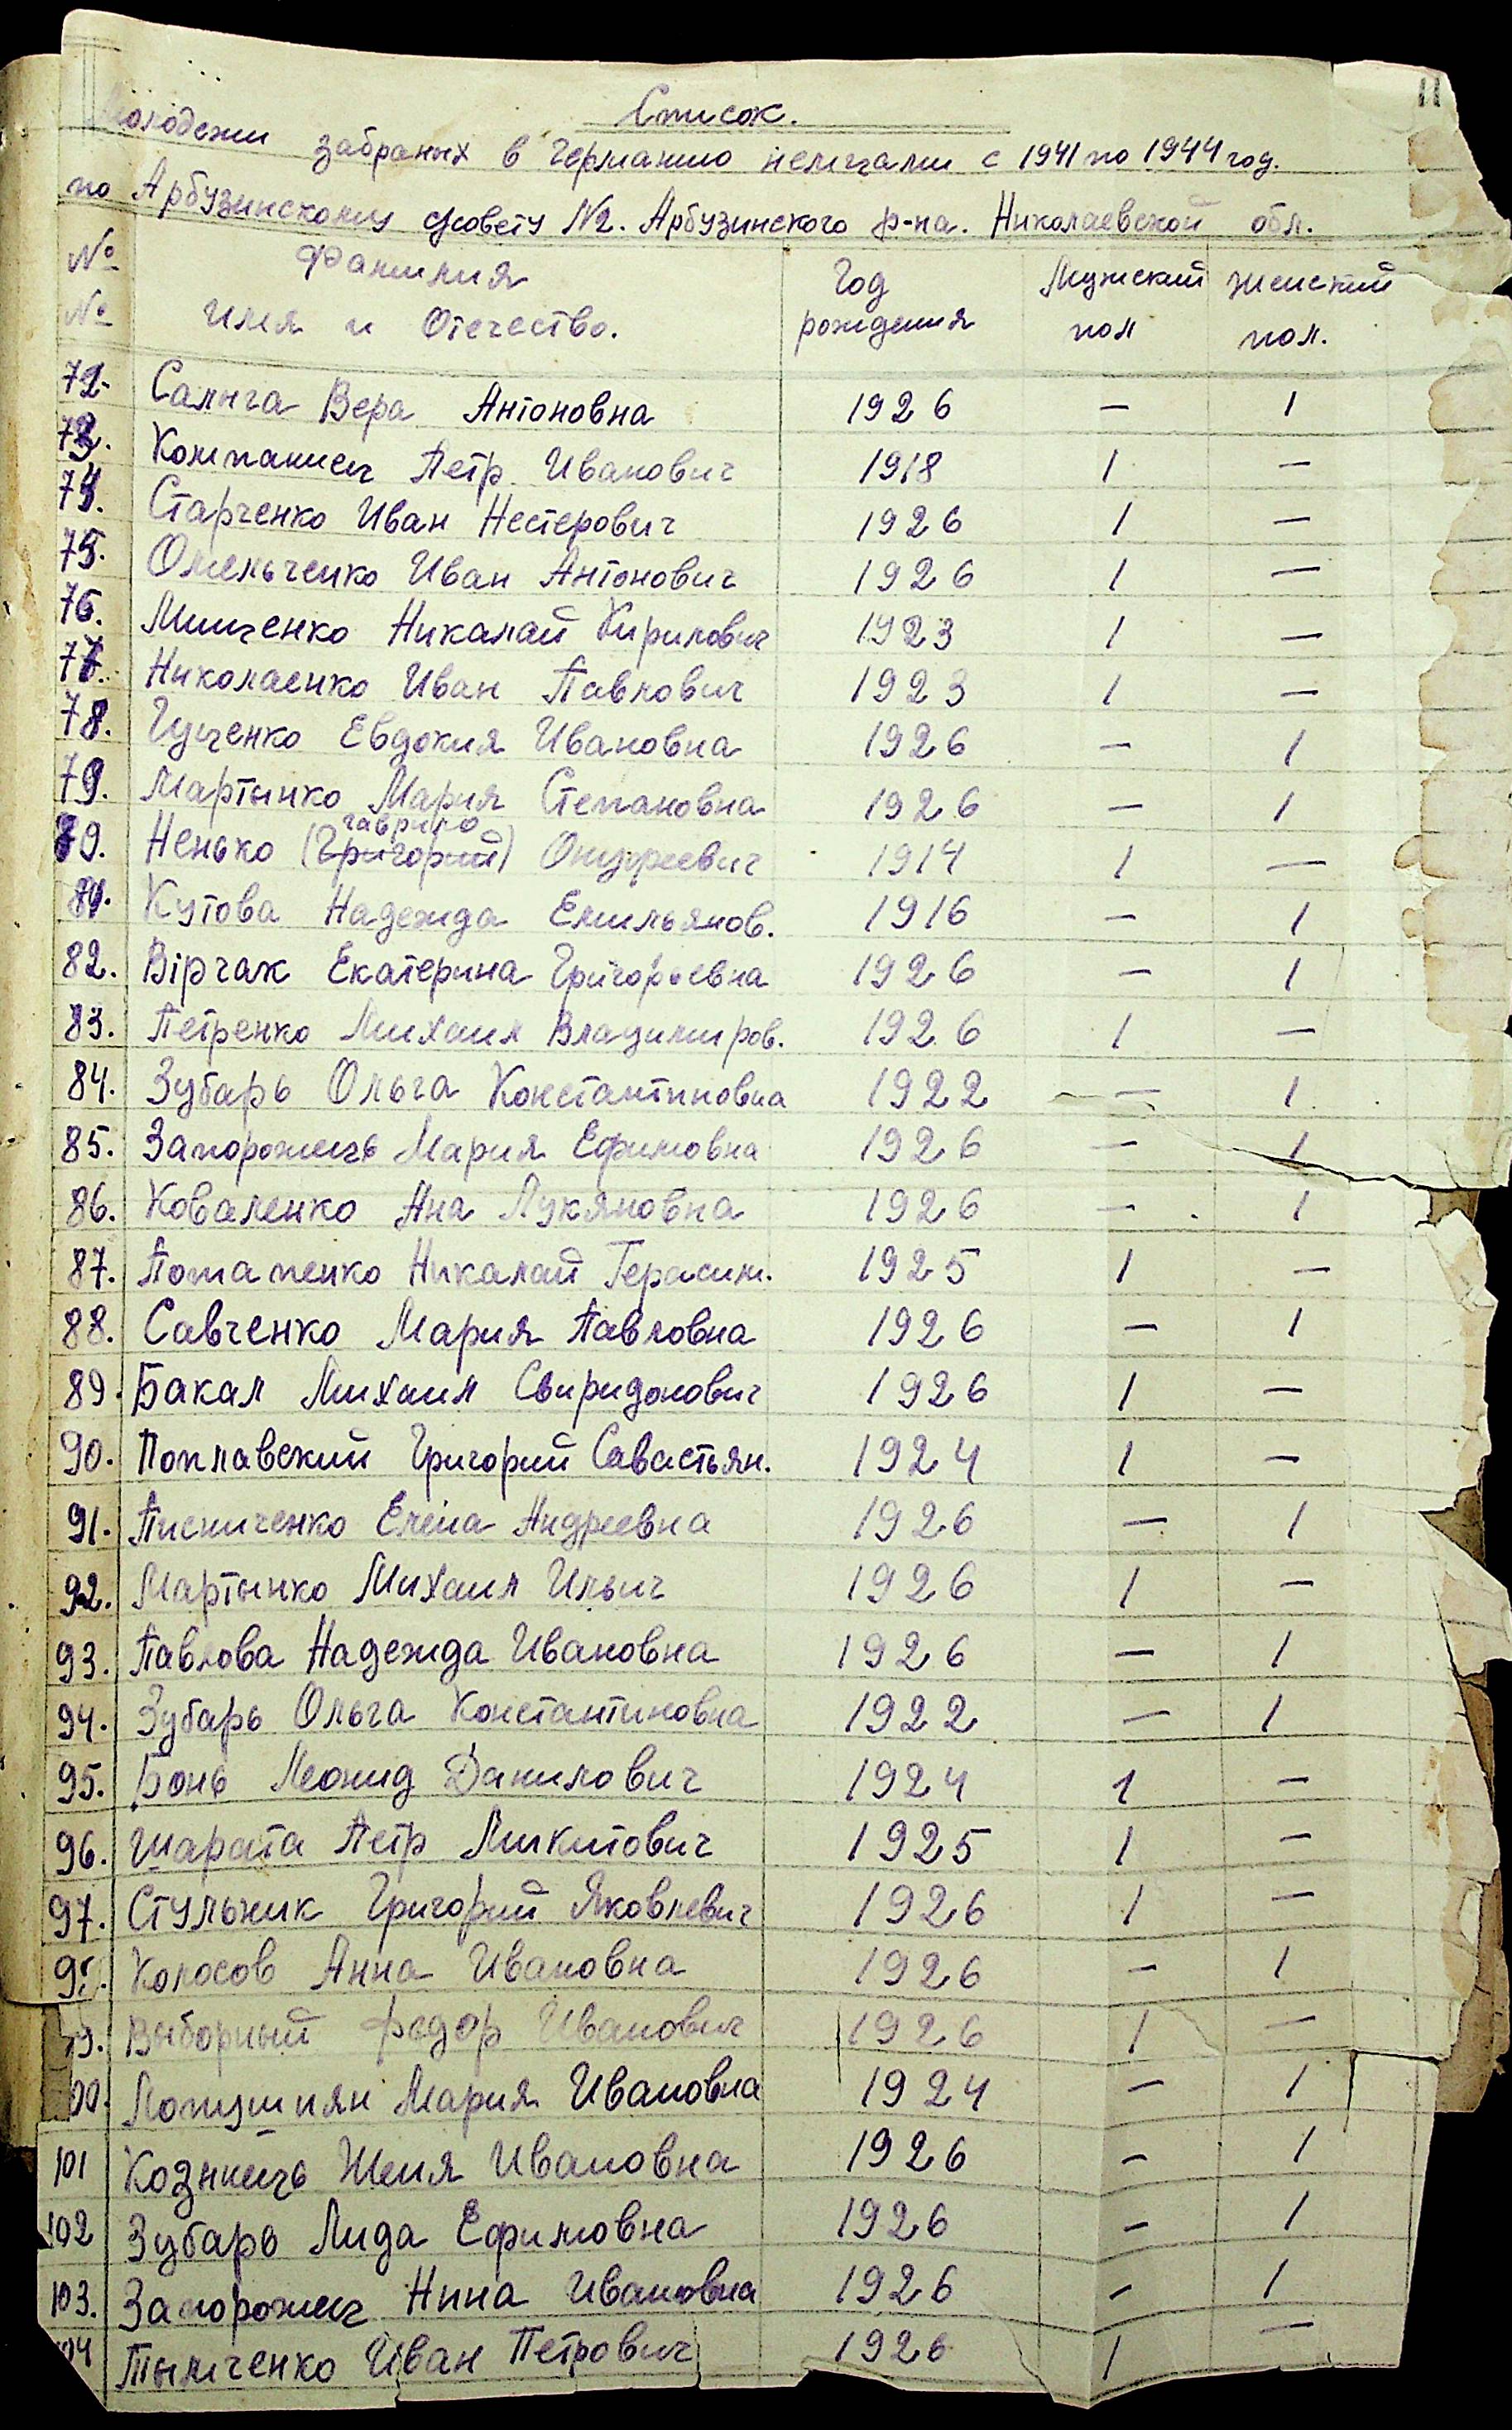 11
Список.
Молодежи забраных в Германию немцами с 1941 по 1944 год.
по Арбузинскому Совету №2. Арбузинского р-на. Николаевской обл.
№ Фамилия Год Мужский Женский
№ имя и Отечество. рождения пол пол.
72. Салыга Вера Антоновна 1926 — 1
73. Компаниец Петр Иванович 1918 1 —
74. Старченко Иван Нестерович 1926 1 —
75. Омельченко Иван Антонович 1926 1 —
76. Мищенко Никалай Кирилович 1923 1 —
77. Николаенко Иван Павлович 1923 1 —
78. Гущенко Евдокия Ивановна 1926 — 1
79. Мартынко Мария Степановна 1926 — 1
гаврило
89. Ненько (Григорий) Онуфреевич 1914 1 —
Кутова Надежда Емильянов. 1916 — 1
82. Вірчак Екатерина Григорьевна 1926 — 1
83. Петренко Михаил Владимиров. 1926 1 —
84. Зубарь Ольга Константиновна 1922 — 1
85. Запорожець Мария Ефимовна 1926 — 1
86. Коваленко Аня Лукяновна 1926 — 1
87. Потапенко Никалай Герасим. 1925 1 —
88. Савченко Мария Павловна 1926 — 1
89. Бакал Михаил Свиридонович 1926 1 —
90. Поплавский Григорий Савастьян. 1924 1 —
91. Писниченко Елена Андреевна 1926 — 1
92. Мартынко Михаил Ильич 1926 1 —
93. Павлова Надежда Ивановна 1926 — 1
94. Зубарь Ольга Константиновна 1922 — 1
95. Бонь Леонид Данилович 1924 1 —
96. Шарата Петр Микитович 1925 1 —
97. Стульник Григорий Яковлевич 1926 1 —
98. Колосов Анна Ивановна 1926 — 1
9. Выборный Федор Иванович 1926 1 —
00. Мария Ивановна 1924 — 1
101 Женя Ивановна 1926 — 1
102 Зубарь Лида Ефимовна 1926 — 1
103. Запорожец Нина Ивановна 1926 — 1
104 Тымченко Иван Петрович 1926 1 —